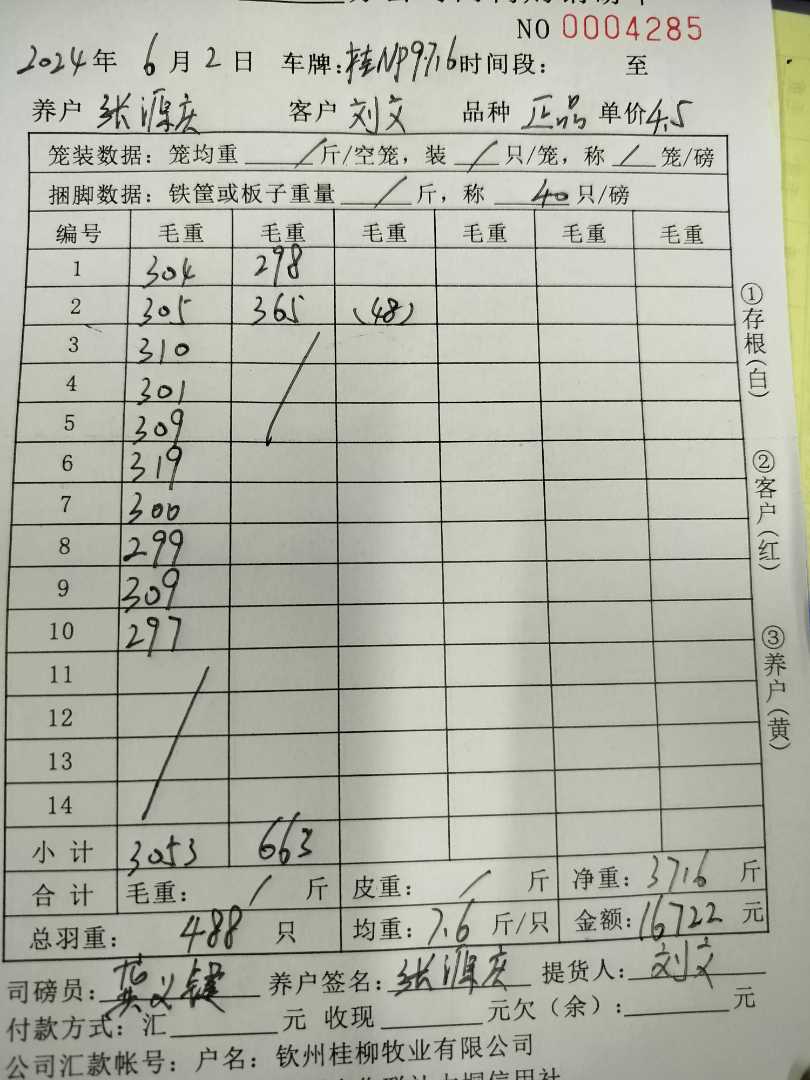 NO 0004285
2024年 6月2日 车牌:桂NP9716时间段: 至
养户 张源庆 客户 刘文 品种 正品 单价4.5
笼装数据:笼均重 / 斤/空笼,装 / 只/笼,称 / 笼/磅
捆脚数据:铁筐或板子重量 / 斤,称 40 只/磅
编号 毛重 毛重 毛重 毛重 毛重 毛重
1 304 298
2 305 365 (48)
3 310
4 301
5 309
6 319
7 300
8 299
9 309
10 297
11
12
13
14
小计 3053 663
合计 毛重: / 斤 皮重: / 斤 净重:3716 斤
总羽重: 488 只 均重:7.6 斤/只 金额:16722 元
司磅员: 养户签名:张源庆 提货人:刘文
付款方式:汇 元 收现 元欠(余): 元
公司汇款帐号:户名:钦州桂柳牧业有限公司
①存根(白)
②客户(红)
③养户(黄)